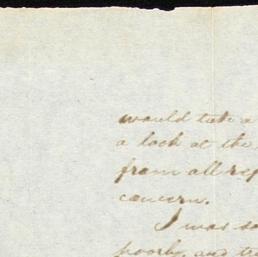 would take a
a look at the
from all rep
concern.
I was so
poorly, and tr